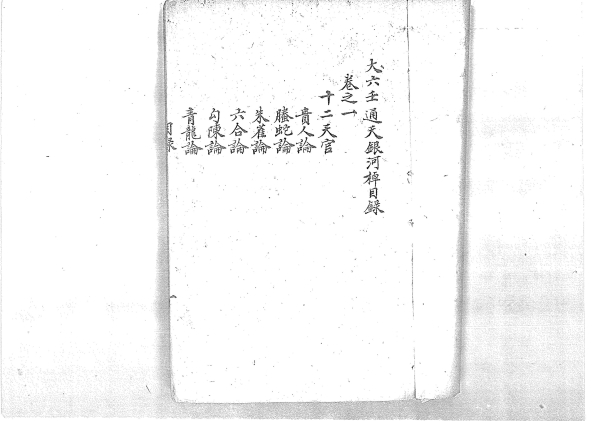 大六壬通天銀河棹目録
卷之一
十二天官
貴人論
螣蛇論
朱雀論
六合論
勾陳論
青龍論
目録